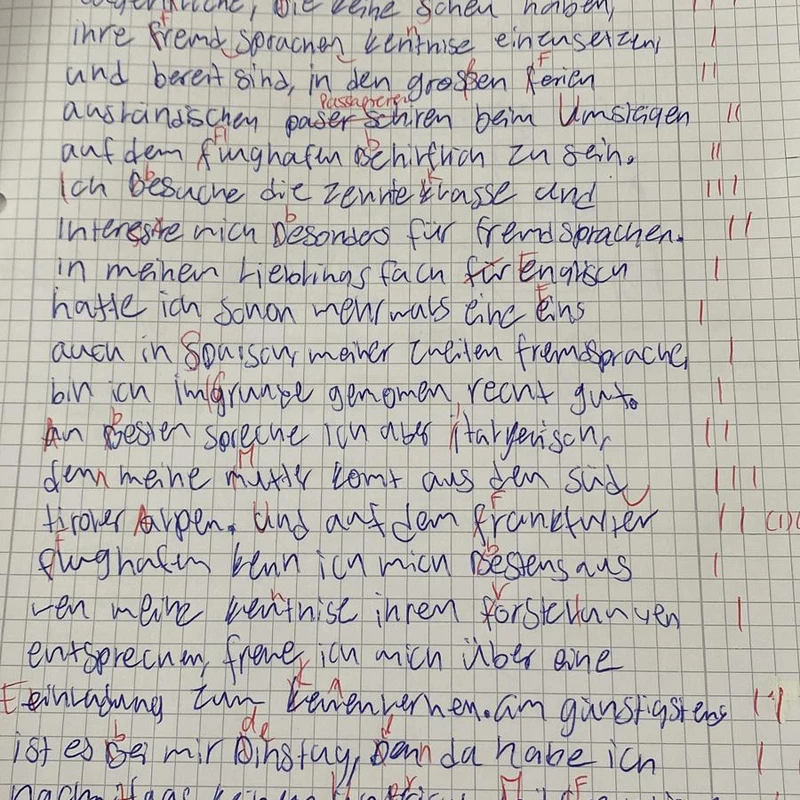 die keine scheu haben,
ihre fremd sprachen kentnise einzusetzen,
und bereit sind, in den großen ferien
ausländischen paser schiren beim Umsteigen
auf dem flughafen Behilflich zu sein.
Ich Besuche die zehnte klasse und
Interesire mich Besonders für fremdsprachen.
in meinem Lieblings fach für Englisch
hatte ich schon mehrmals eine eins
auch in Spanisch, meiner zweiten fremdsprache,
bin ich im grunde genomen recht gut.
An Besten spreche ich aber italyenisch,
denn meine mutter komt aus den süd
tiroler Alpen. Und auf dem frankfurter
flughafen kenn ich mich Bestens aus
wen meine kentnise ihrem forstellungen
entsprechen, freue ich mich über eine
Einladung zum kenenlernen. am günstigstens
ist es Bei mir Dinstag, Denn da habe ich